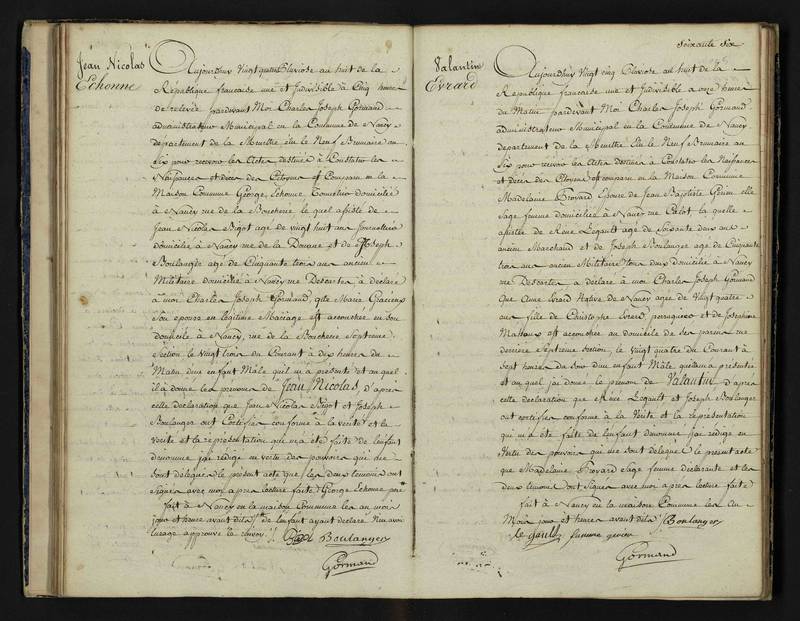 Jean Nicolas
Echonne
Aujourdhuy Vingt quatre Pluviose an huit de la
République francaise une et Indivisible à Cinq heures
de relevée pardevant Moi Charles Joseph Gormand
administrateur Municipal en la Commune de Nancy
département de la Meurthe élu le Neuf Brumaire an
Six pour recevoir les Actes destinés à Constater les
Naissances et décès des Citoyens est Comparu en la
Maison Commune George Echonne domicilié
à Nancy rue de la Boucherie le quel assisté de
Jean Nicolas Bigot agé de vingt huit ans
domicilié à Nancy rue de la Douane et de Joseph
Boulanger agé de Cinquante trois ans ancien
Militaire domicilié à Nancy rue Descartes a déclaré
à moi Charles Joseph Gormand, que Marie Gracieux
Son épouse en légitime Mariage est accouchée en son
domicile à Nancy, rue de la Boucherie Septieme
Section, le vingt trois du Courant à deux heures du
Matin, d'un enfant Mâle qu'il m'a présenté et auquel
il a donné les prenoms de Jean Nicolas, d'après
cette déclaration que Jean Nicolas Bigot et Joseph
Boulanger ont Certifiés conforme à la verité et la
verité et la représentation qui m'a été faite de lenfant
denommé j'ai rédigé en vertu des pouvoirs qui me
sont délégués le présent acte que les deux temoins ont
signés avec moi apres lecture faite George Echonne pere
fait à Nancy en la maison Commune les an mois
jour et heure avant dits de lenfant ayant declaré
approuvé le renvoy. Boulanger
Gormand
soixante six
Valantin
Evrard
Aujourdhuy Vingt cinq Pluviose an huit de la
République francaise une et Indivisible à onze heures
du Matin pardevant Moi Charles Joseph Gormand
administrateur Municipal en la Commune de Nancy
département de la Meurthe élu le Neuf Brumaire an
Six pour recevoir les Actes destinés à Constater les Naissances
et décès des Citoyens est comparu en la Maison Commune
Madelaine Epouse de Jean Baptiste elle
Sage femme domiciliée à Nancy rue Calot la quelle
assistée de René Legault agé de soixante deux ans
ancien Marchand et de Joseph Boulanger agé de Cinquante
trois ans ancien Militaire tous deux domicilié à Nancy
rue Descartes, a déclaré à moi Charles Joseph Gormand
Que Anne Evrard Native de Nancy agée de Vingt quatre
ans fille de Christophe Evrard, perruquier et de Josephine
est accouchée au domicile de ses parens rue
derriere Septieme Section, le vingt quatre du Courant à
Sept heures du soir d'un enfant Mâle, quelle m'a présenté
et auquel j'ai donné le prenom de Valantin d'après
cette déclaration que René Legault et Joseph Boulanger
ont certifiés conforme à la Verité et la représentation
qui m'a été faite de lenfant denommé j'ai rédigé en
Vertu des pouvoirs qui me sont délégués le présent acte
que Madelaine Sage femme déclarante et les
deux temoins ont signés avec moi après lecture faite
fait à Nancy en la maison Commune les an
Mois jour et heure avant dits Boulanger
le gault femme
Gormand